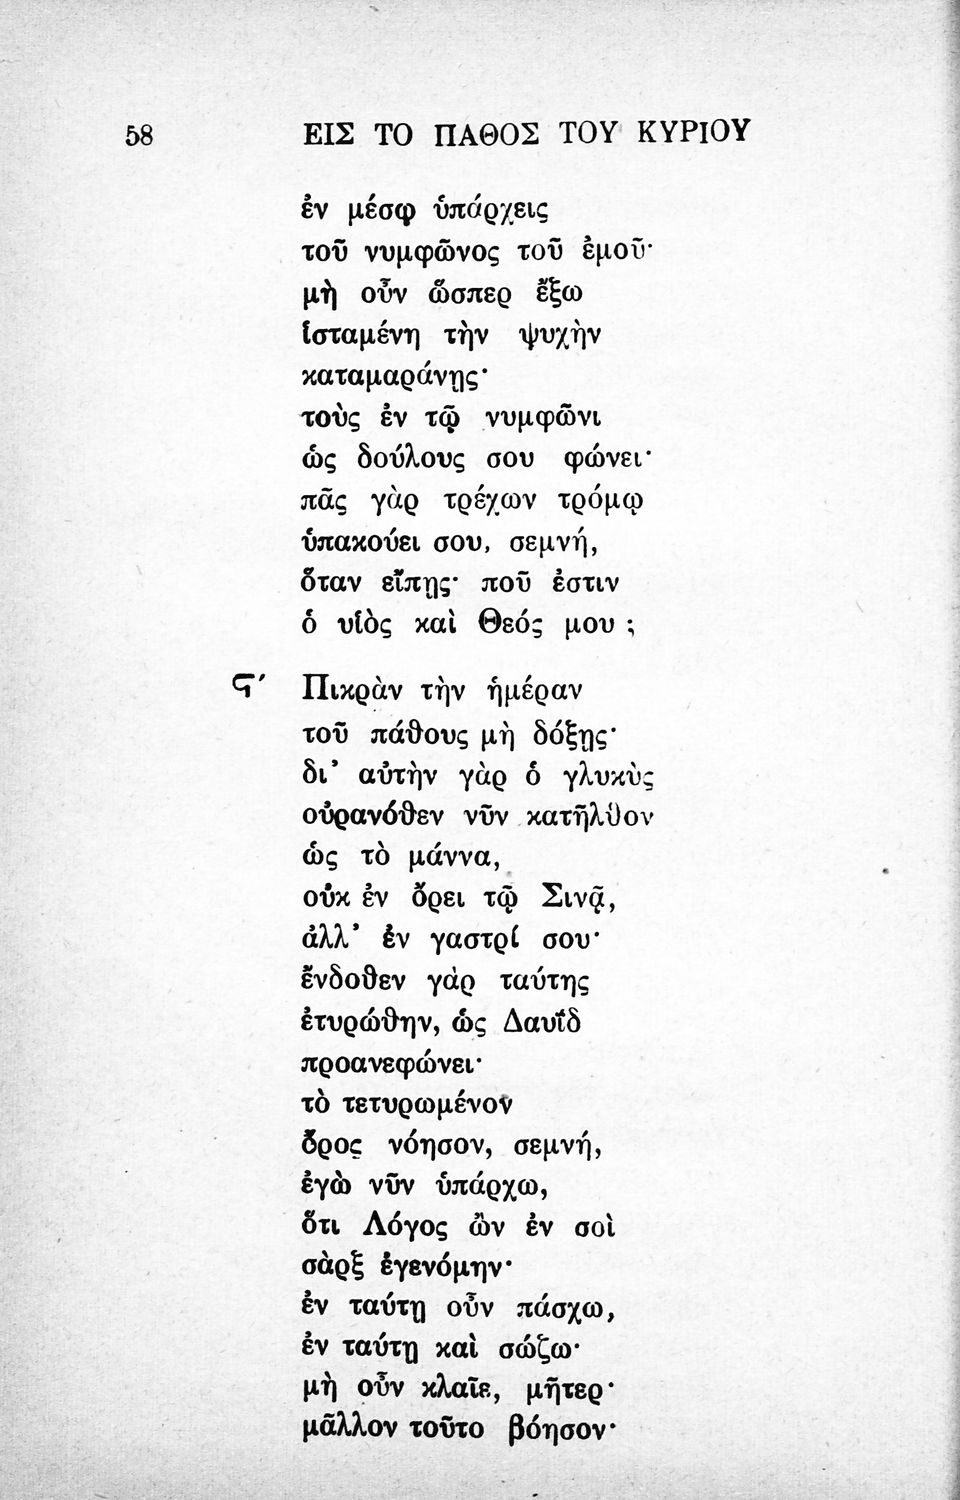 58 ΕΙΣ ΤΟ ΠΑΘΟΣ ΤΟΥ ΚΥΡΙΟΥ
ἐν μέσῳ ὑπάρχεις
τοῦ νυμφῶνος τοῦ ἐμοῦ·
μὴ οὖν ὥσπερ ἔξω
ἱσταμένη τὴν ψυχὴν
καταμαράνῃς·
τοὺς ἐν τῷ νυμφῶνι
ὡς δούλους σου φώνει·
πᾶς γὰρ τρέχων τρόμῳ
ὑπακούει σου, σεμνή,
ὅταν εἴπῃς· ποῦ ἐστιν
ὁ υἱὸς καὶ Θεός μου ;
Ϛ΄ Πικρὰν τὴν ἡμέραν
τοῦ πάθους μὴ δόξῃς·
δι᾽ αὐτὴν γὰρ ὁ γλυκὺς
οὐρανόθεν νῦν κατῆλθον
ὡς τὸ μάννα,
οὐκ ἐν ὄρει τῷ Σινᾷ,
ἀλλ᾽ ἐν γαστρί σου·
ἔνδοθεν γὰρ ταύτης
ἐτυρώθην, ὡς Δαυῒδ
προανεφώνει·
τὸ τετυρωμένον
ὄρος νόησον, σεμνή,
ἐγὼ νῦν ὑπάρχω,
ὅτι Λόγος ὢν ἐν σοὶ
σὰρξ ἐγενόμην·
ἐν ταύτῃ οὖν πάσχω,
ἐν ταύτῃ καὶ σώζω·
μὴ οὖν κλαῖε, μῆτερ·
μᾶλλον τοῦτο βόησον·